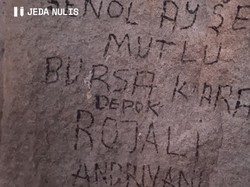 JEDA NULIS
NOL AYŞE
MUTLU
BURSA KARA
DEPOK
ROJALI
ANDRIYANI